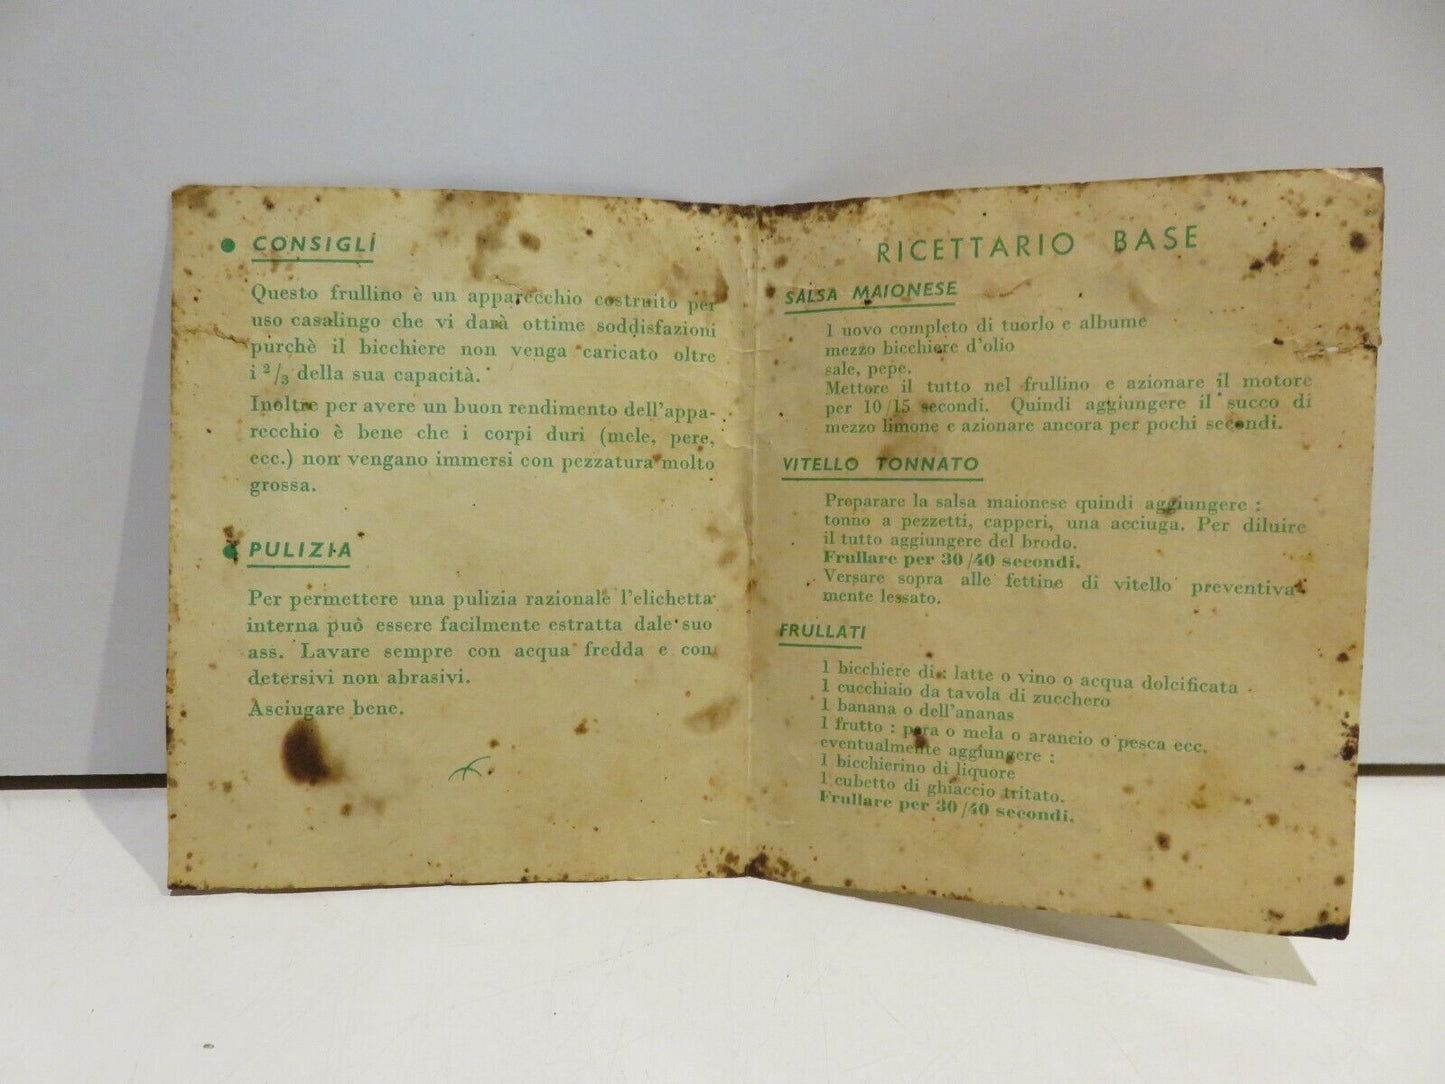 ● CONSIGLI
Questo frullino è un apparecchio costruito per
uso casalingo che vi darà ottime soddisfazioni
purchè il bicchiere non venga caricato oltre
i 2/3 della sua capacità.
Inoltre per avere un buon rendimento dell'appa-
recchio è bene che i corpi duri (mele, pere,
ecc.) non vengano immersi con pezzatura molto
grossa.
● PULIZIA
Per permettere una pulizia razionale l'elichetta
interna può essere facilmente estratta dale suo
ass. Lavare sempre con acqua fredda e con
detersivi non abrasivi.
Asciugare bene.
RICETTARIO BASE
SALSA MAIONESE
1 uovo completo di tuorlo e albume
mezzo bicchiere d'olio
sale, pepe.
Mettore il tutto nel frullino e azionare il motore
per 10/15 secondi. Quindi aggiungere il succo di
mezzo limone e azionare ancora per pochi secondi.
VITELLO TONNATO
Preparare la salsa maionese quindi aggiungere :
tonno a pezzetti, capperi, una acciuga. Per diluire
il tutto aggiungere del brodo.
Frullare per 30/40 secondi.
Versare sopra alle fettine di vitello preventiva-
mente lessato.
FRULLATI
1 bicchiere di : latte o vino o acqua dolcificata
1 cucchiaio da tavola di zucchero
1 banana o dell'ananas
1 frutto : pera o mela o arancio o pesca ecc.
eventualmente aggiungere :
1 bicchierino di liquore
1 cubetto di ghiaccio tritato.
Frullare per 30/40 secondi.